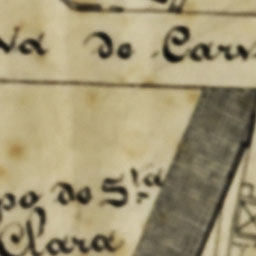 va de Carv
po de Sta
Clara